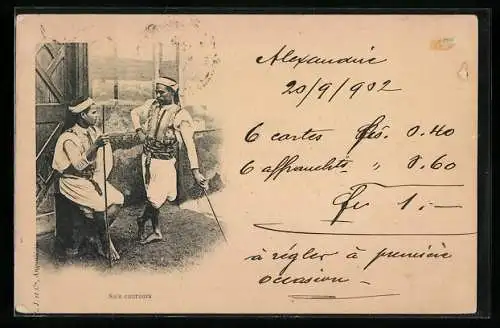 Alexandrie
20/9/902
6 cartes frs. 0.40
6 affrancht. " 0.60
frs 1.-
à régler à première
occasion.-
Saïs coureurs